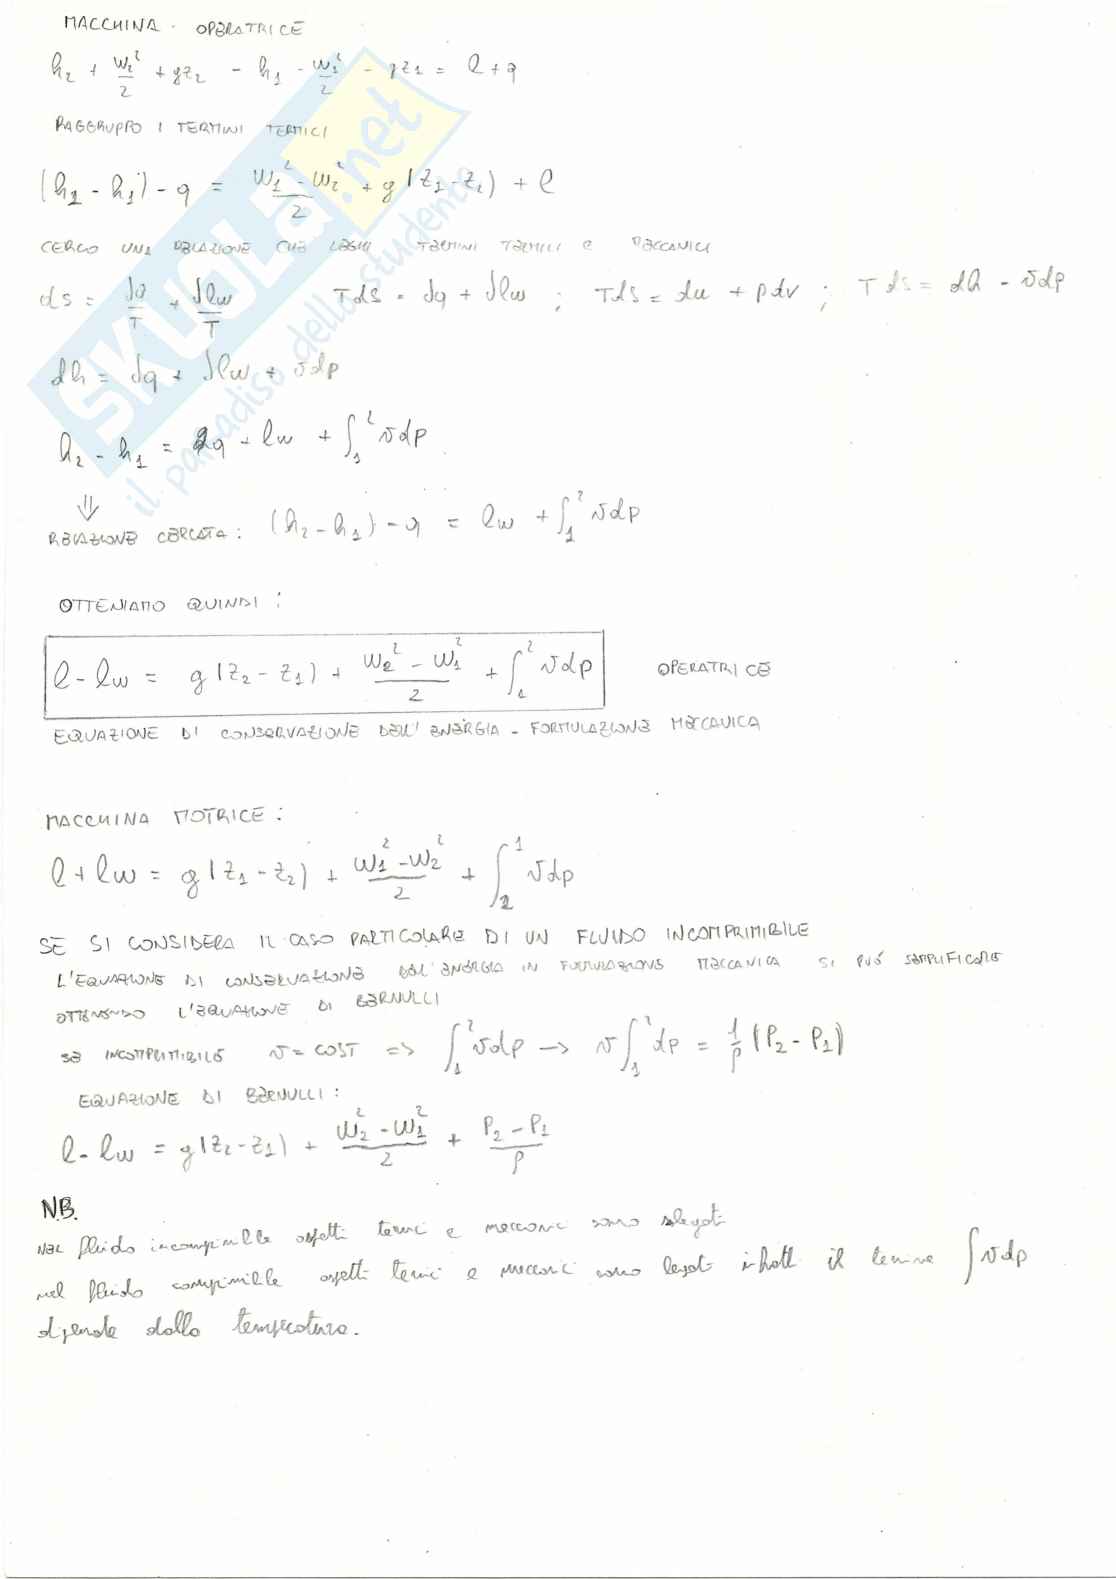 MACCHINA - OPERATRICE
h₂ + w₂²/2 + gz₂ - h₁ - w₁²/2 - gz₁ = l + q
RAGGRUPPO I TERMINI TERMICI
(h₂ - h₁) - q = (w₁² - w₂²)/2 + g(z₁ - z₂) + l
CERCO UNA RELAZIONE CHE LEGHI TERMINI TERMICI E MECCANICI
ds = δq/T + δlw/T Tds = δq + δlw ; Tds = du + pdv ; Tds = dh - vdp
dh = δq + δlw + vdp
h₂ - h₁ = q + lw + ∫₁² vdp
⇓
RELAZIONE CERCATA : (h₂ - h₁) - q = lw + ∫₁² vdp
OTTENIAMO QUINDI :
l - lw = g(z₂ - z₁) + (w₂² - w₁²)/2 + ∫₁² vdp OPERATRICE
EQUAZIONE DI CONSERVAZIONE DELL'ENERGIA - FORMULAZIONE MECCANICA
MACCHINA MOTRICE :
l + lw = g(z₁ - z₂) + (w₁² - w₂²)/2 + ∫₂¹ vdp
SE SI CONSIDERA IL CASO PARTICOLARE DI UN FLUIDO INCOMPRIMIBILE
L'EQUAZIONE DI CONSERVAZIONE DELL'ENERGIA IN FORMULAZIONE MECCANICA SI PUÓ SEMPLIFICARE
OTTENENDO L'EQUAZIONE DI BERNULLI
SE INCOMPRIMIBILE v = COST => ∫₁² vdp → v∫₁² dp = 1/ρ (P₂ - P₁)
EQUAZIONE DI BERNULLI :
l - lw = g(z₂ - z₁) + (w₂² - w₁²)/2 + (P₂ - P₁)/ρ
N.B.
NEL fluido incomprimibile aspetti termici e meccanici sono slegati
nel fluido comprimibile aspetti termici e meccanici sono legati infatti il termine ∫vdp
dipende dalla temperatura.
SKUOLA.net
il paradiso dello studente